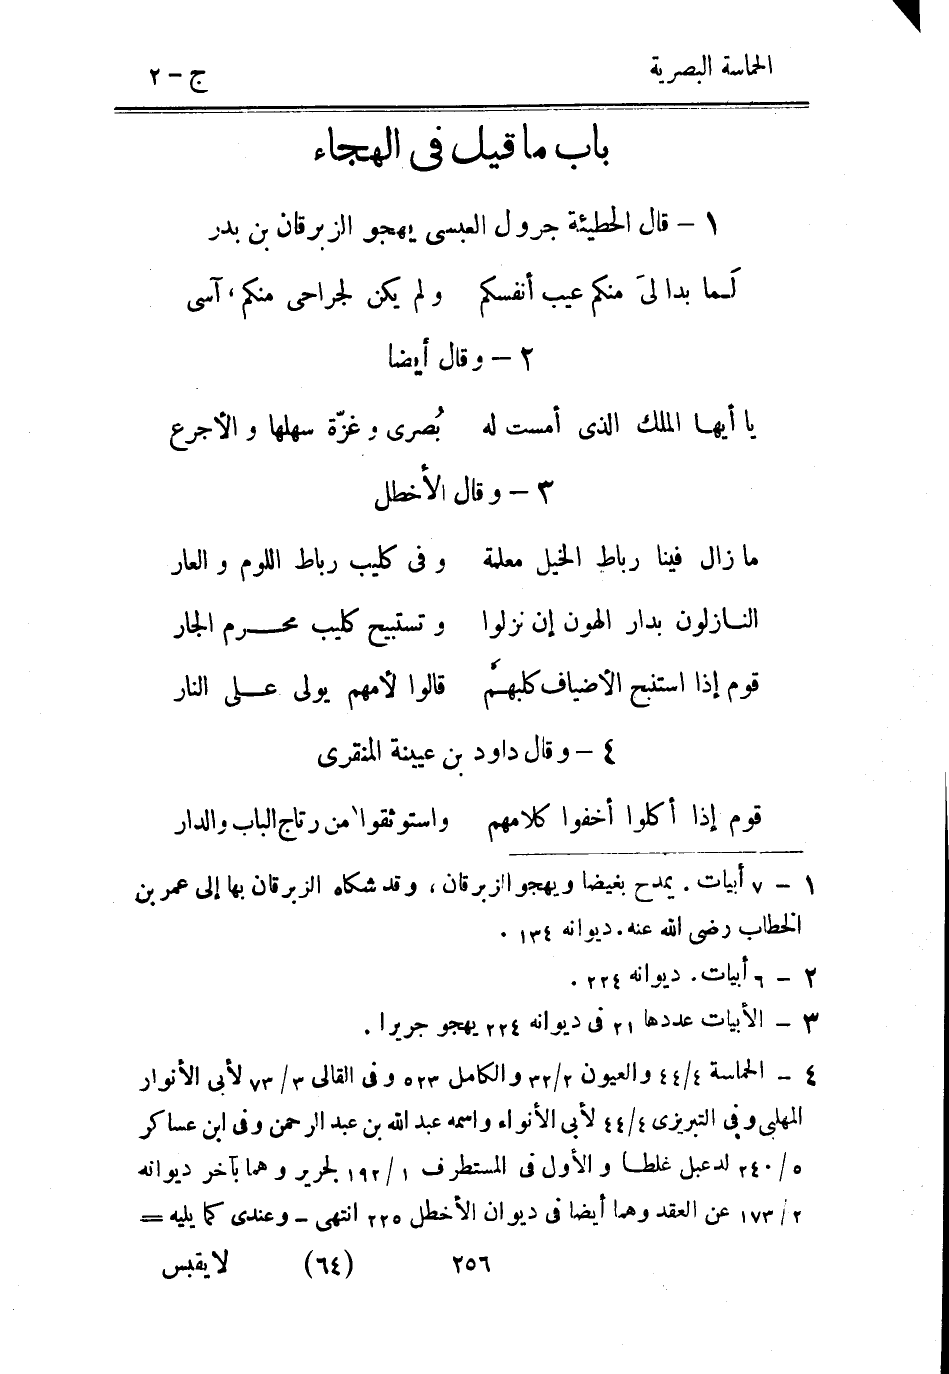 الحماسة البصرية ج - ٢
باب ما قيل فى الهجاء
١ - قال الحطيئة جرول العبسى يهجو الزبرقان بن بدر
لَـما بدا لىَ منكم عيب أنفسكم و لم يكن لجراحى منكم، آسى
٢ - و قال أيضا
يا أيها الملك الذى أمست له بُصرى و غزّة سهلها و الأجرع
٣ - و قال الأخطل
ما زال فينا رباط الخيل معلمة و فى كليب رباط اللوم و العار
النـازلون بدار الهون إن نزلوا و تستبيح كليب محـــرم الجار
قوم إذا استنبح الأضياف كلبهمُ قالوا لأمهم بولى عـلى النار
٤ - و قال داود بن عيينة المنقرى
قوم إذا أكلوا أخفوا كلامهم واستوثقوا من رتاج الباب والدار
١ - ٧ أبيات. يمدح بغيضا ويهجو الزبرقان، وقد شكاه الزبرقان بها إلى عمر بن
الخطاب رضى الله عنه. ديوانه ١٣٤ .
٢ - ٦ أبيات. ديوانه ٢٢٤ .
٣ - الأبيات عددها ٢١ فى ديوانه ٢٢٤ يهجو جريرا .
٤ - الحماسة ٤/٤٤ والعيون ٢/٣٢ والكامل ٥٢٣ وفى القالى ٣/٧٣ لأبى الأنوار
المهلبى وفى التبريزى ٤/٤٤ لأبى الأنواء واسمه عبد الله بن عبد الرحمن وفى ابن عساكر
٥/٢٤٠ لدعبل غلطـا و الأول فى المستطرف ١/١٩٢ لجرير وهما بآخر ديوانه
٢/١٧٣ عن العقد وهما أيضا فى ديوان الأخطل ٢٢٥ انتهى - وعندى كما يليه =
٢٥٦ (٦٤) لا يقبس